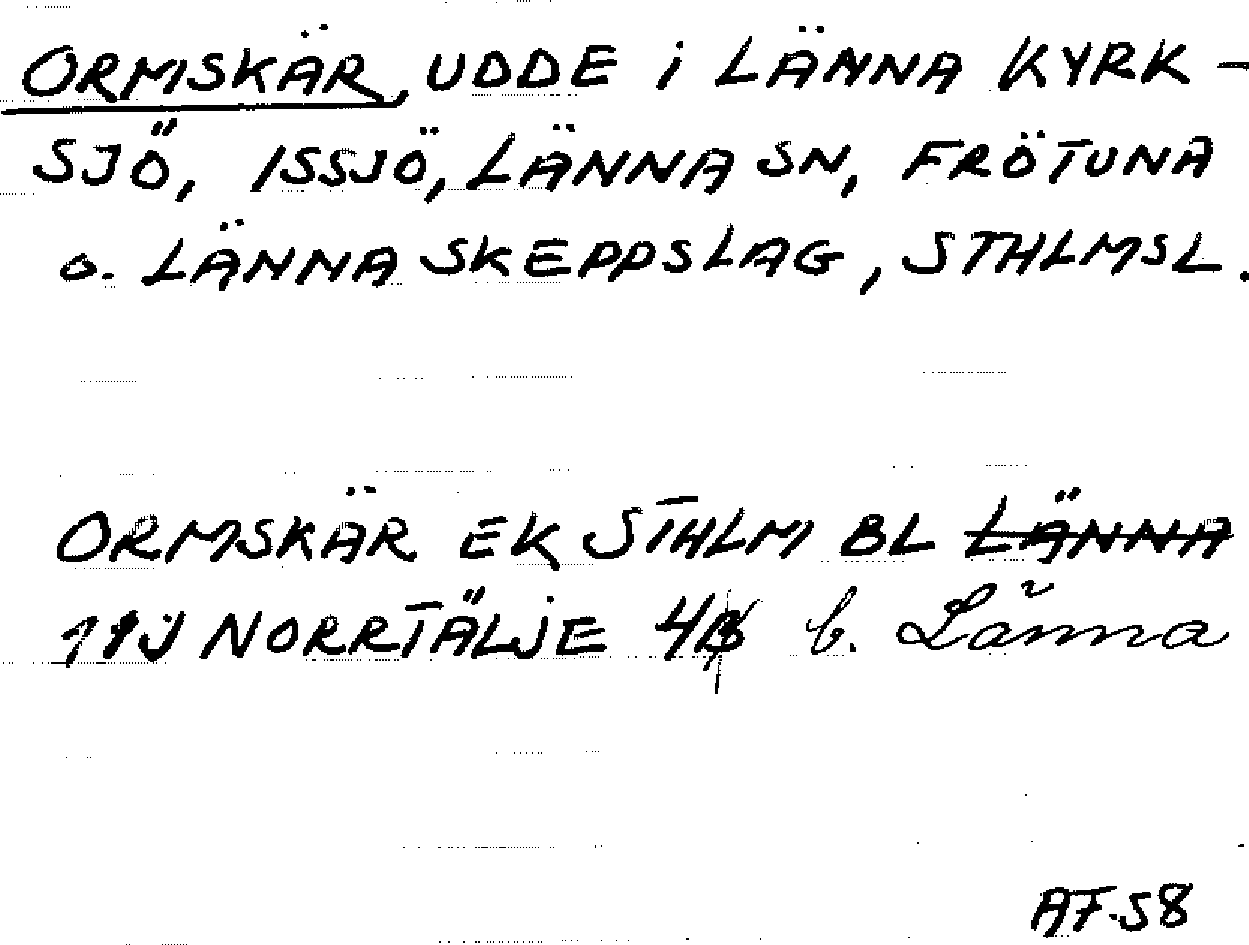 ORMSKÄR, UDDE i LÄNNA KYRK-
SJÖ, ISSJÖ, LÄNNA SN, FRÖTUNA
o. LÄNNA SKEPPSLAG, STHLMSL.
ORMSKÄR EK STHLM BL LÄNNA
11J NORRTÄLJE 4 b. Länna
AF.58